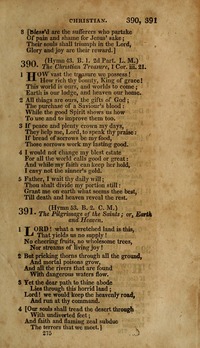 CHRISTIAN. 390, 391
3 [Bless'd are the sufferers who partake
Of pain and shame for Jesus' sake;
Their souls shall triumph in the Lord,
Glory and joy are their reward.]
390. (Hymn 53. B. 1. 2d Part. L. M.)
The Christian Treasure, 1 Cor. iii. 21.
1 HOW vast the treasure we possess!
How rich thy bounty, King of grace!
This world is ours, and worlds to come;
Earth is our lodge, and heaven our home.
2 All things are ours, the gifts of God;
The purchase of a Saviour's blood:
While the good Spirit shows us how
To use and to improve them too.
3 If peace and plenty crown my days,
They help me, Lord, to speak thy praise:
If bread of sorrows be my food,
Those sorrows work my lasting good.
4 I would not change my blest estate
For all the world calls good or great:
And while my faith can keep her hold,
I envy not the sinner's gold.
5 Father, I wait thy daily will;
Thou shalt divide my portion still:
Grant me on earth what seems thee best,
Till death and heaven reveal the rest.
391. (Hymn 53. B. 2. C. M.)
The Pilgrimage of the Saints; or, Earth
and Heaven.
1 LORD! what a wretched land is this,
That yields us no supply!
No cheering fruits, no wholesome trees,
Nor streams of living joy!
2 But pricking thorns through all the ground,
And mortal poisons grow,
And all the rivers that are found
With dangerous waters flow.
3 Yet the dear path to thine abode
Lies through this horrid land;
Lord! we would keep the heavenly road,
And run at thy command.
4 [Our souls shall tread the desert through
With undiverted feet;
And faith and flaming zeal subdue
The terrors that we meet.]
275